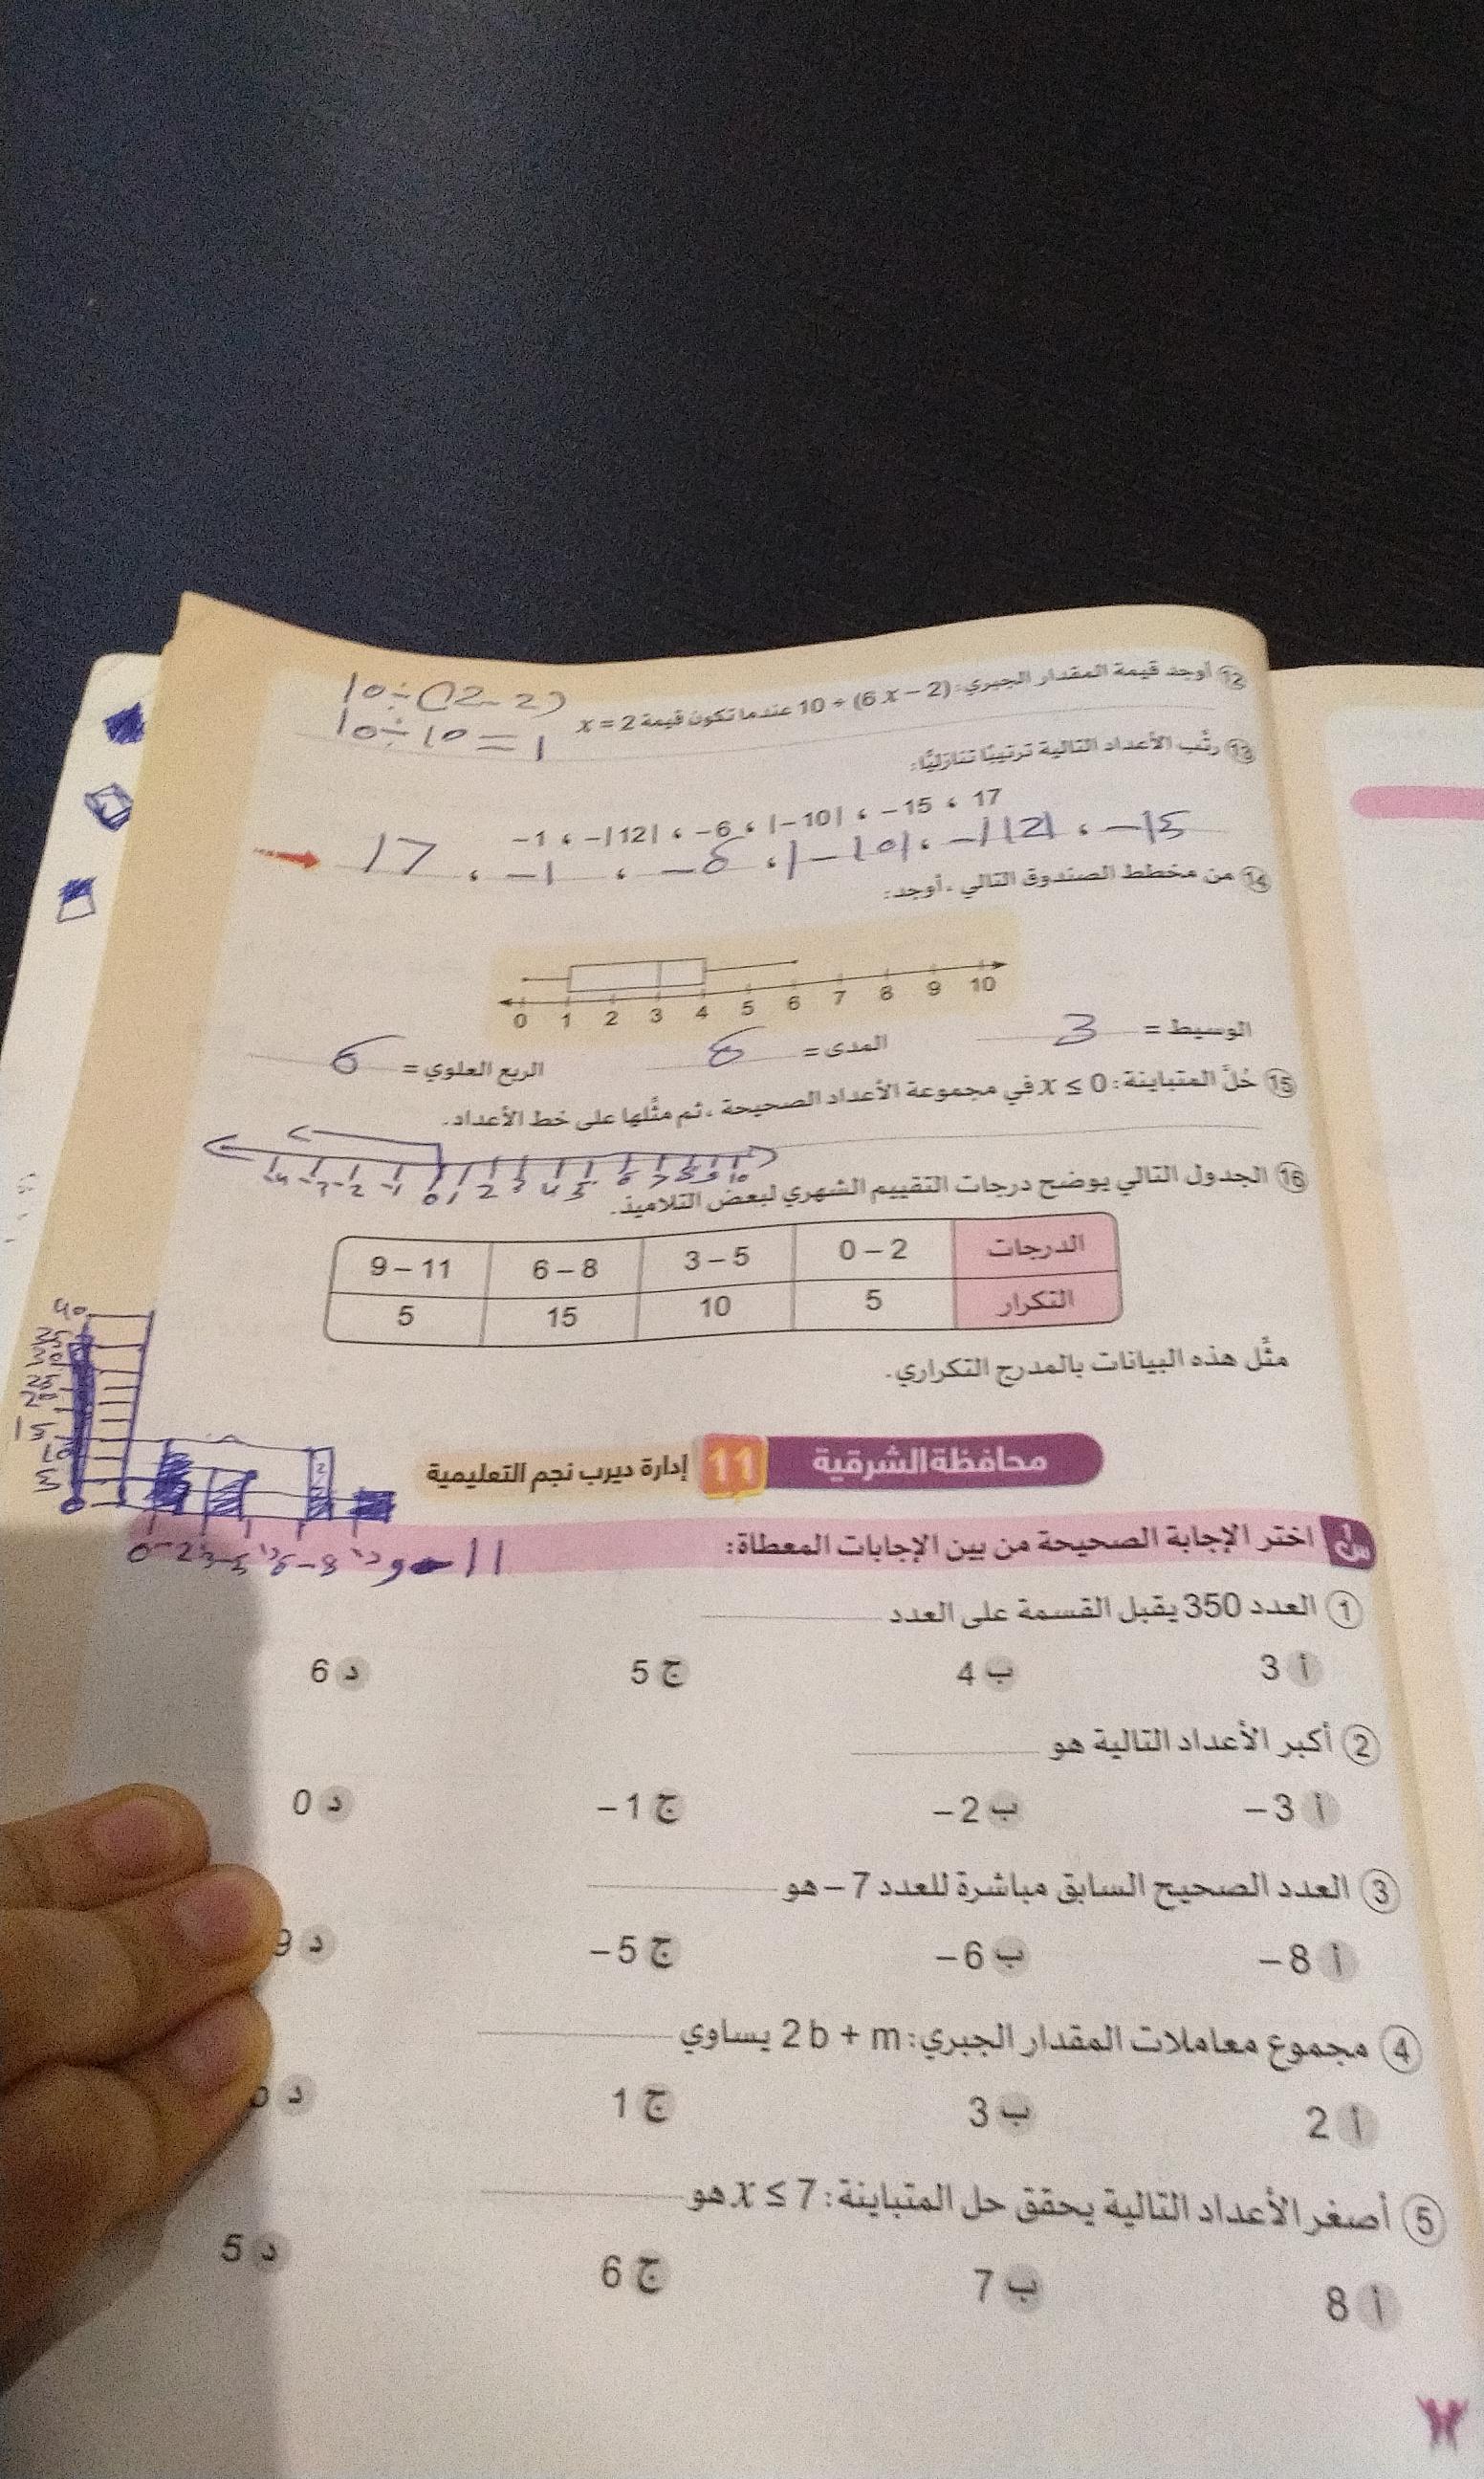 12 أوجد قيمة المقدار الجبري: 10 ÷ (6x – 2) عندما تكون قيمة x = 2
10÷(12-2)
10÷10=1
13 رتّب الأعداد التالية ترتيبًا تنازليًا:
–1 ، –|12| ، –6 ، |–10| ، –15 ، 17
17 ، -1 ، -6 ، |-10| ، -|12| ، -15
14 من مخطط الصندوق التالي ، أوجد:
0 1 2 3 4 5 6 7 8 9 10
الوسيط = 3 المدى = 6 الربع العلوي = 6
15 حُلَّ المتباينة: x ≤ 0 في مجموعة الأعداد الصحيحة ، ثم مثّلها على خط الأعداد.
-4 -3 -2 -1 0 1 2 3 4 5 6 7 8 9 10
16 الجدول التالي يوضح درجات التقييم الشهري لبعض التلاميذ.
الدرجات 0 – 2 3 – 5 6 – 8 9 – 11
التكرار 5 10 15 5
مثّل هذه البيانات بالمدرج التكراري.
40
0
0-2 3-5 6-8 9-11
محافظة الشرقية 11 إدارة ديرب نجم التعليمية
س1 اختر الإجابة الصحيحة من بين الإجابات المعطاة:
1 العدد 350 يقبل القسمة على العدد
أ 3 ب 4 ج 5 د 6
2 أكبر الأعداد التالية هو
أ –3 ب –2 ج –1 د 0
3 العدد الصحيح السابق مباشرة للعدد 7 – هو
أ –8 ب –6 ج –5 د
4 مجموع معاملات المقدار الجبري: 2b + m يساوي
أ 2 ب 3 ج 1 د
5 أصغر الأعداد التالية يحقق حل المتباينة: x ≤ 7 هو
أ 8 ب 7 ج 6 د 5